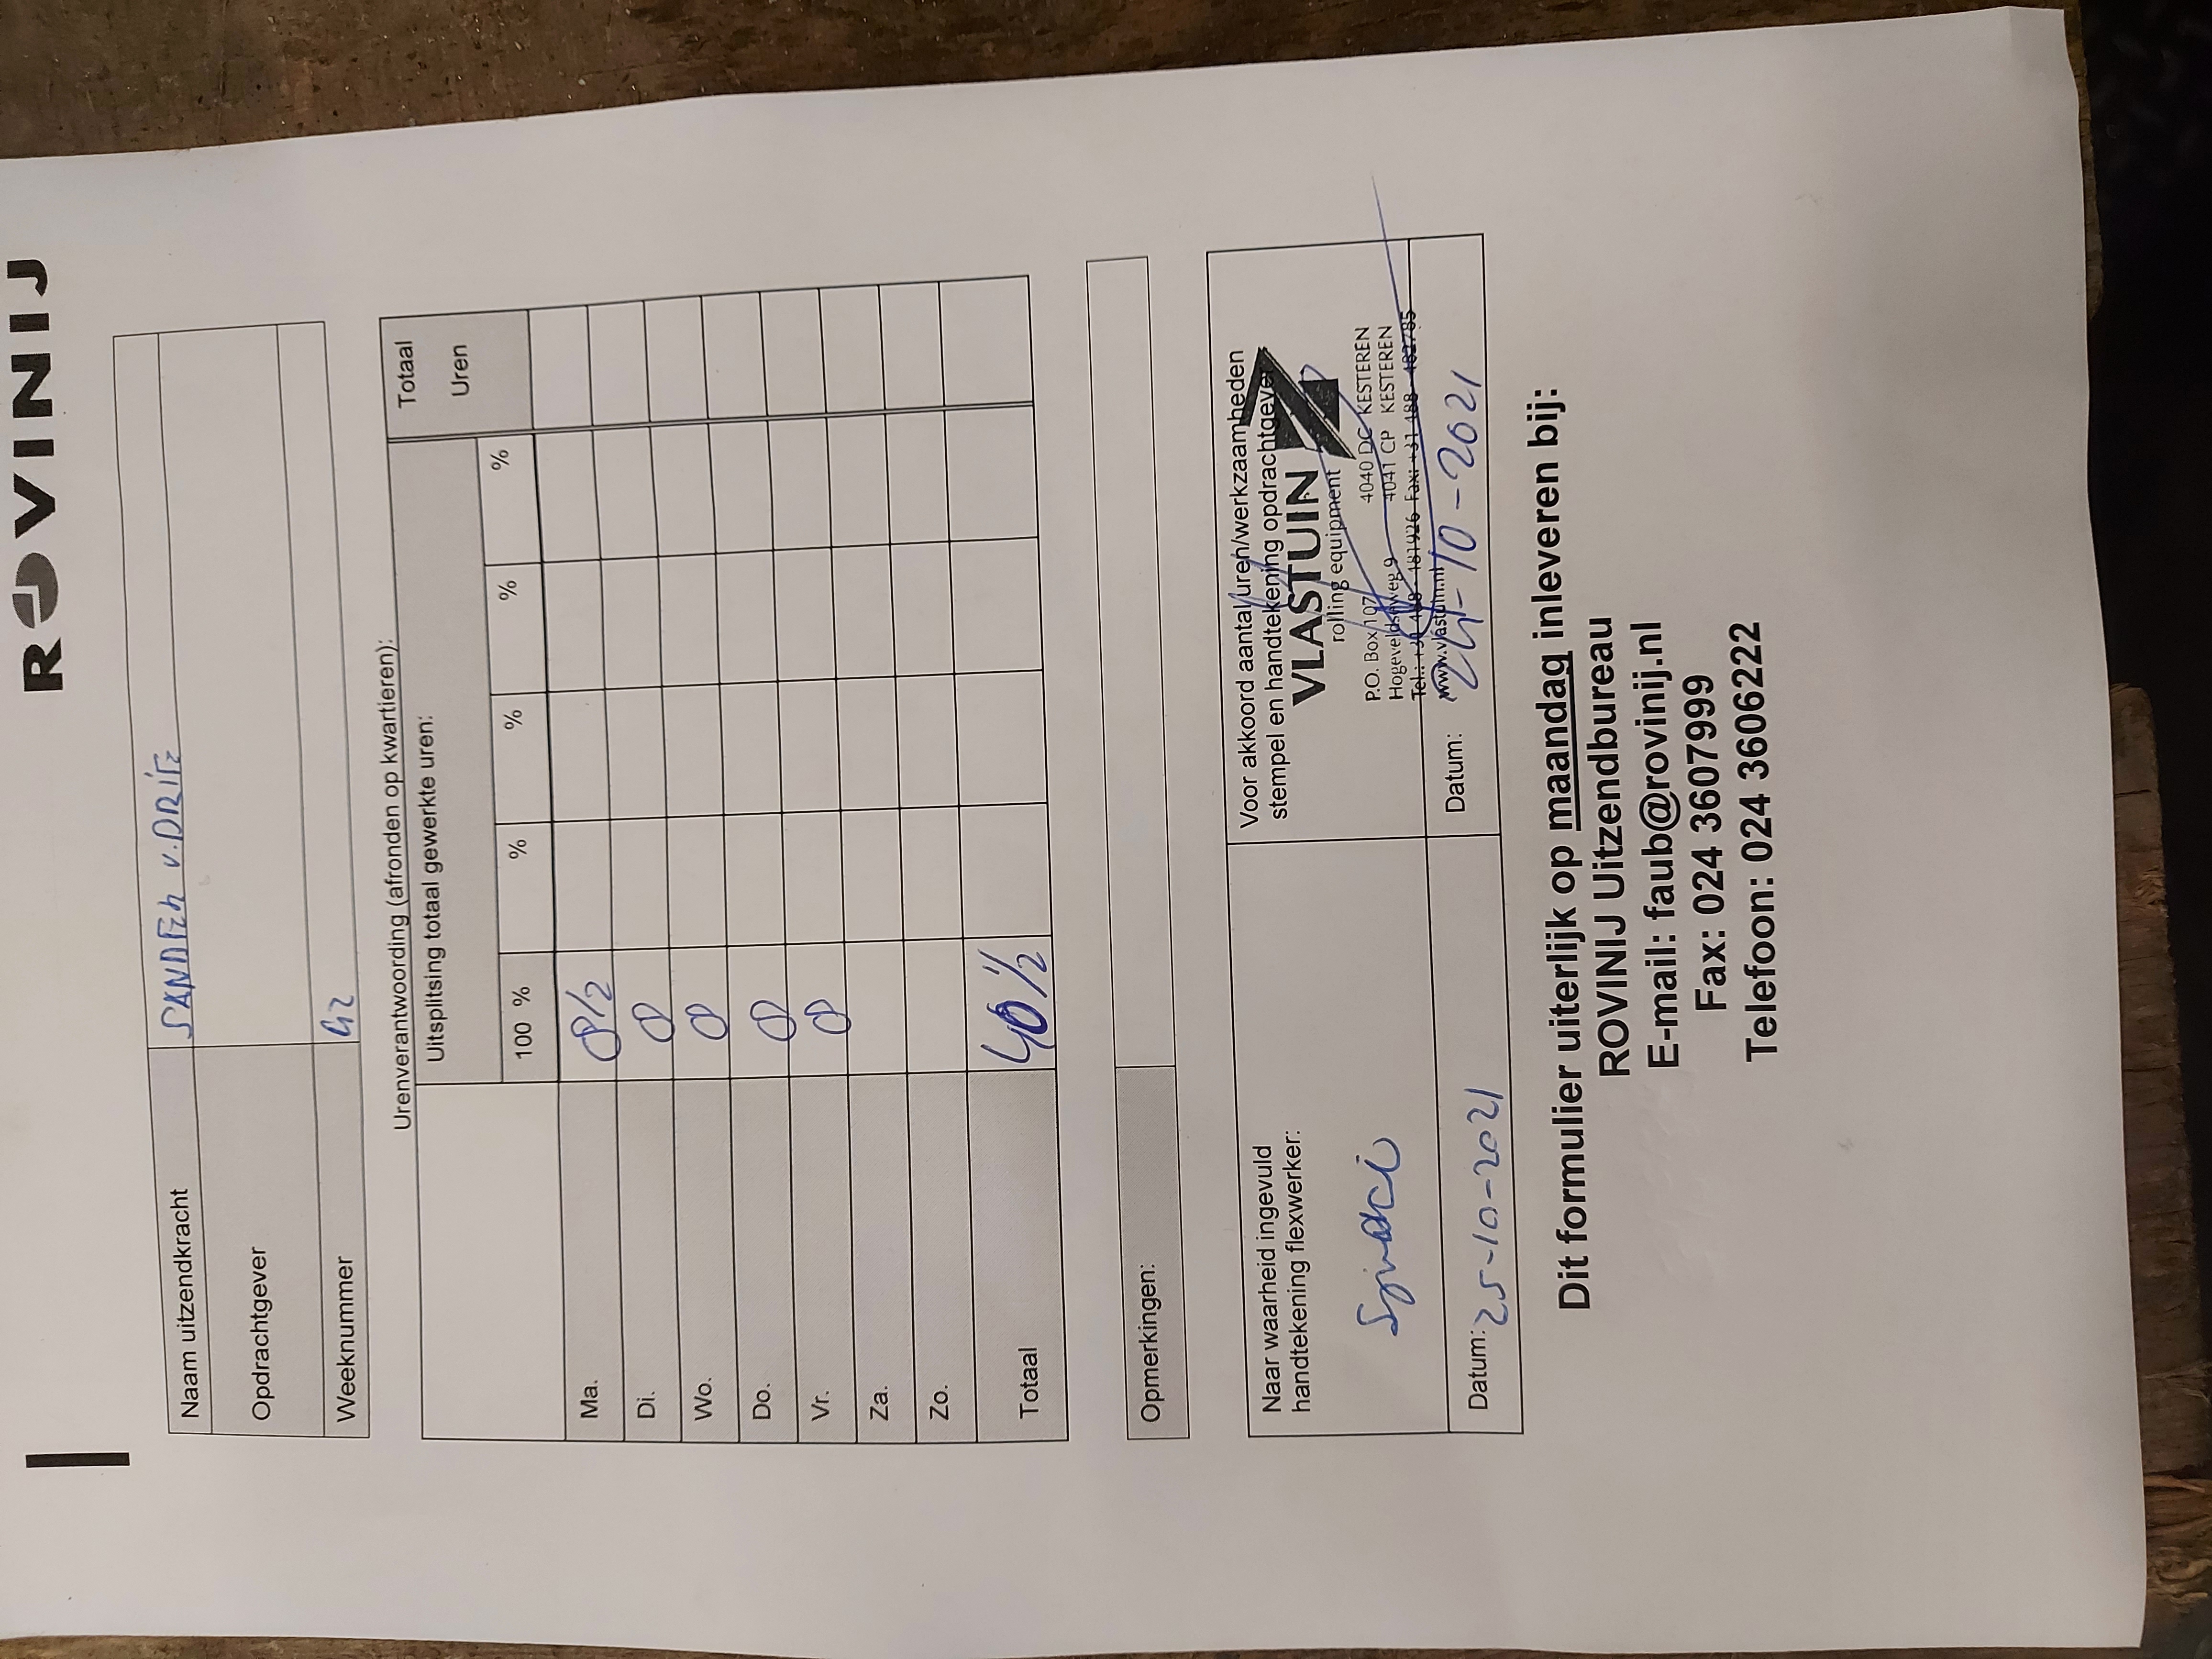 ROVINIJ
Naam uitzendkracht SANDER v. DRIE
Opdrachtgever
Weeknummer 42
Urenverantwoording (afronden op kwartieren):
Uitsplitsing totaal gewerkte uren: Totaal Uren
100 % % % % %
Ma. 8 1/2
Di. 8
Wo. 8
Do. 8
Vr. 8
Za.
Zo.
Totaal 40 1/2
Opmerkingen:
Naar waarheid ingevuld
handtekening flexwerker:
Datum: 25-10-2021
Voor akkoord aantal uren/werkzaamheden
stempel en handtekening opdrachtgever
VLASTUIN
rolling equipment
P.O. Box 107 4040 DC KESTEREN
Hogeveldseweg 9 4041 CP KESTEREN
Tel.: +31 488 - 481926 Fax: +31 488 - 482785
www.vlastuin.nl
Datum: 24-10-2021
Dit formulier uiterlijk op maandag inleveren bij:
ROVINIJ Uitzendbureau
E-mail: faub@rovinij.nl
Fax: 024 3607999
Telefoon: 024 3606222